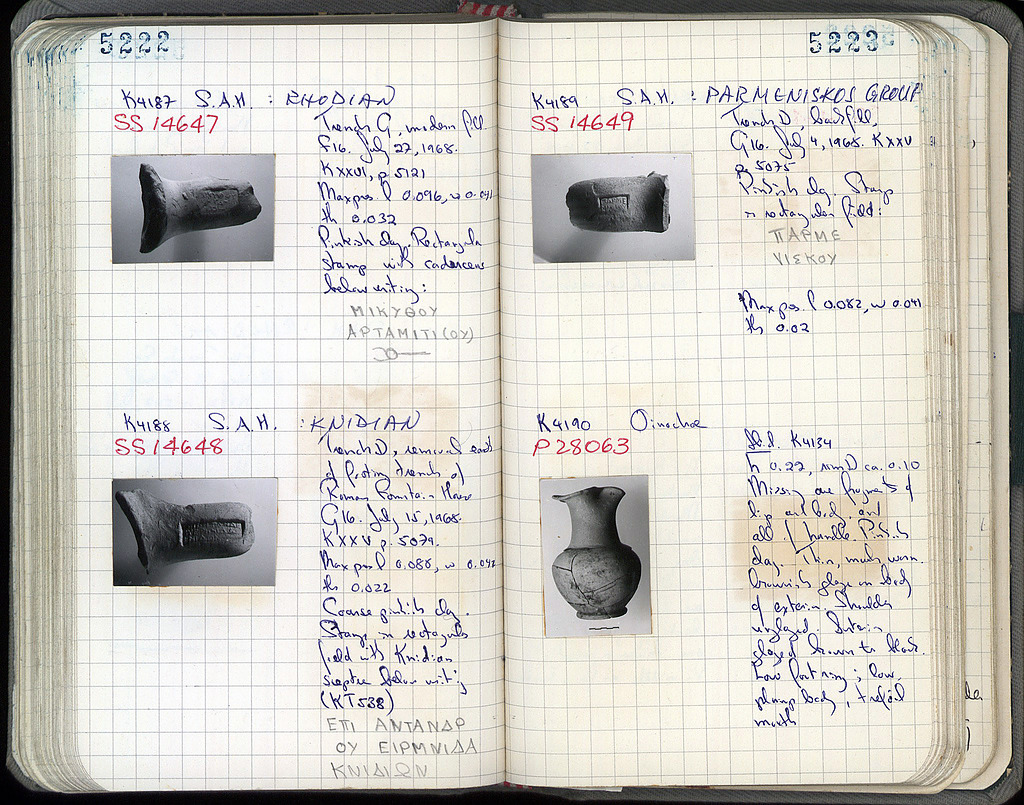 5222
K4187 S.A.H. : RHODIAN
SS 14647
Trench G, modern fill
F16. July 27, 1968.
KXXVI, p. 5121
Max pres. l 0.096, w 0.041
th 0.032
Pinkish clay. Rectangular
stamp with caduceus
below writing:
ΜΙΚΥΘΟΥ
ΑΡΤΑΜΙΤΙ(ΟΥ)
K4188 S.A.H. : KNIDIAN
SS 14648
Trench D, removal earth
of footing trench of
Roman Fountain House
G16. July 15, 1968.
KXXV p. 5079.
Max pres l 0.088, w 0.042
th 0.022
Coarse pinkish clay.
Stamp in rectangular
field with Knidian
scepter below writing
(KT538)
ΕΠΙ ΑΝΤΑΝΔΡ
ΟΥ ΕΙΡΜΝΙΔΑ
ΚΝΙΔΙΩΝ
5223
K4189 S.A.H. : PARMENISKOS GROUP
SS 14649
Trench D, backfill,
G16. July 4, 1968. KXXV
p. 5075
Pinkish clay. Stamp
in rectangular field:
ΠΑΡΜΕ
ΝΙΣΚΟΥ
Max pres. l 0.082, w 0.041
th 0.02
K4190 Oinochoe
P 28063
K4134
h 0.22, mm D ca. 0.10
Missing are fragments of
lip and body and
all of handle. Pinkish
clay. Thin, much worn
brownish glaze on body
of exterior. Shoulder
unglazed. Interior
glazed brown to black.
Low foot ring; low,
plump body, trefoil
mouth